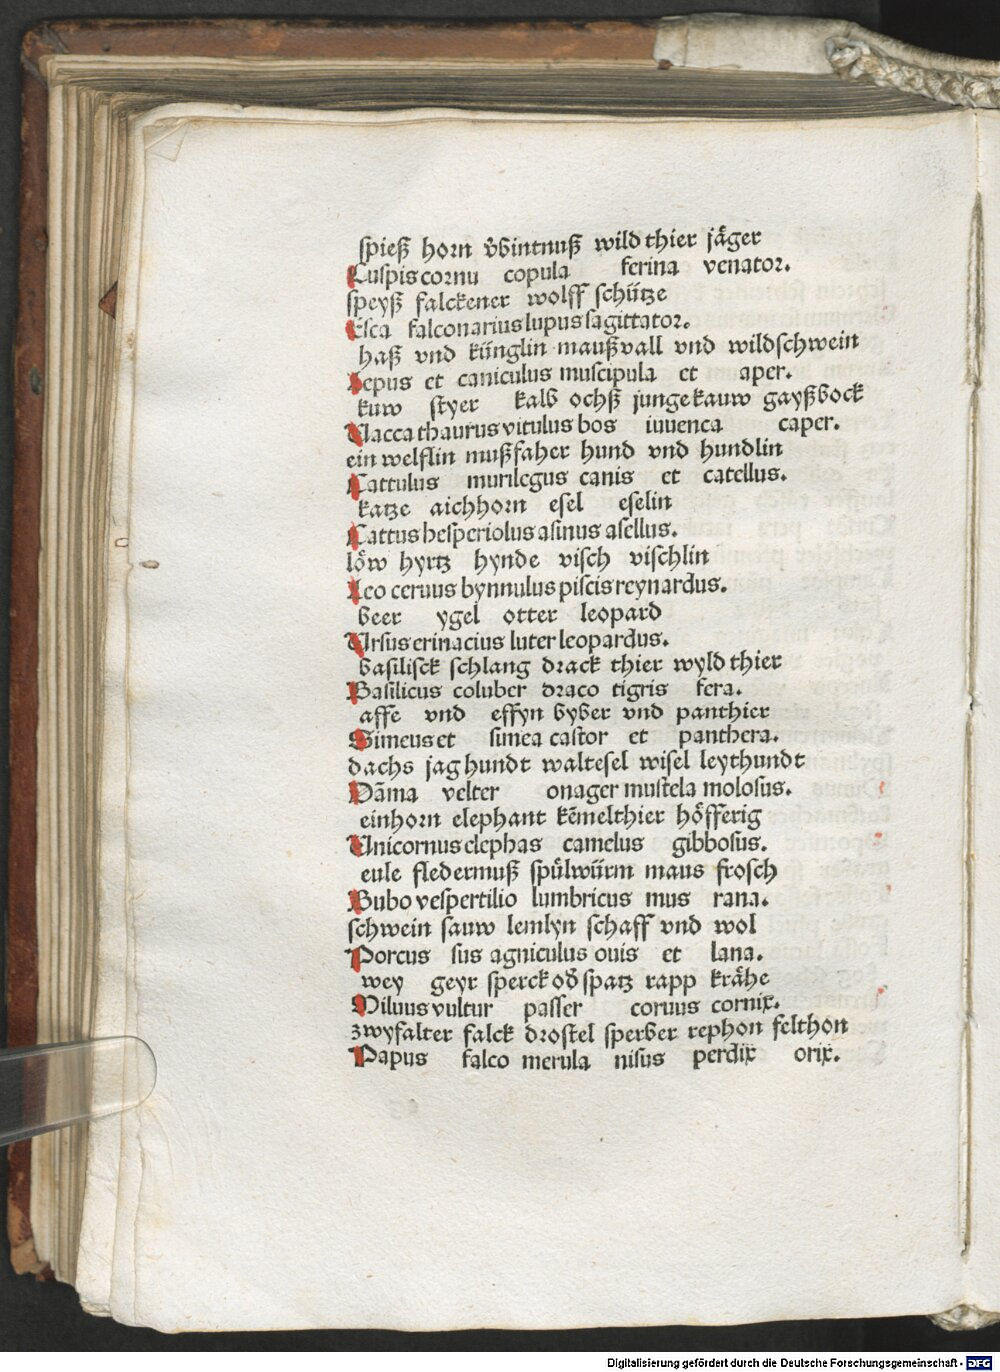 spieß horn v̊bintnuß wild thier jäger
Cuspis cornu copula ferina venator.
speyß falckener wolff schütze
Esca falconarius lupus sagittator.
haß vnd künglin maußvall vnd wildschwein
Lepus et caniculus muscipula et aper.
kuw styer kalb ochß junge kauw gayßbock
Vacca thaurus vitulus bos iuuenca caper.
ein welflin mußfaher hund vnd hundlin
Cattulus murilegus canis et catellus.
katze aichhorn esel eselin
Cattus hesperiolus asinus asellus.
löw hyrtz hynde visch vischlin
Leo ceruus hynnulus piscis reynardus.
beer ygel otter leopard
Vrsus erinacius luter leopardus.
basilisck schlang drack thier wyld thier
Basilicus coluber draco tigris fera.
affe vnd effyn byber vnd panthier
Simeus et simea castor et panthera.
dachs jaghundt waltesel wisel leythundt
Dāma velter onager mustela molosus.
einhorn elephant kēmelthier höfferig
Vnicornus elephas camelus gibbosus.
eule fledermuß spůlwürm maus frosch
Bubo vespertilio lumbricus mus rana.
schwein sauw lemlyn schaff vnd wol
Porcus sus agniculus ouis et lana.
wey geyr sperck od̄ spatz rapp krähe
Miluus vultur passer coruus cornix.
zwyfalter falck drostel sperber rephon felthon
Papus falco merula nisus perdix orix.
Digitalisierung gefördert durch die Deutsche Forschungsgemeinschaft - DFG